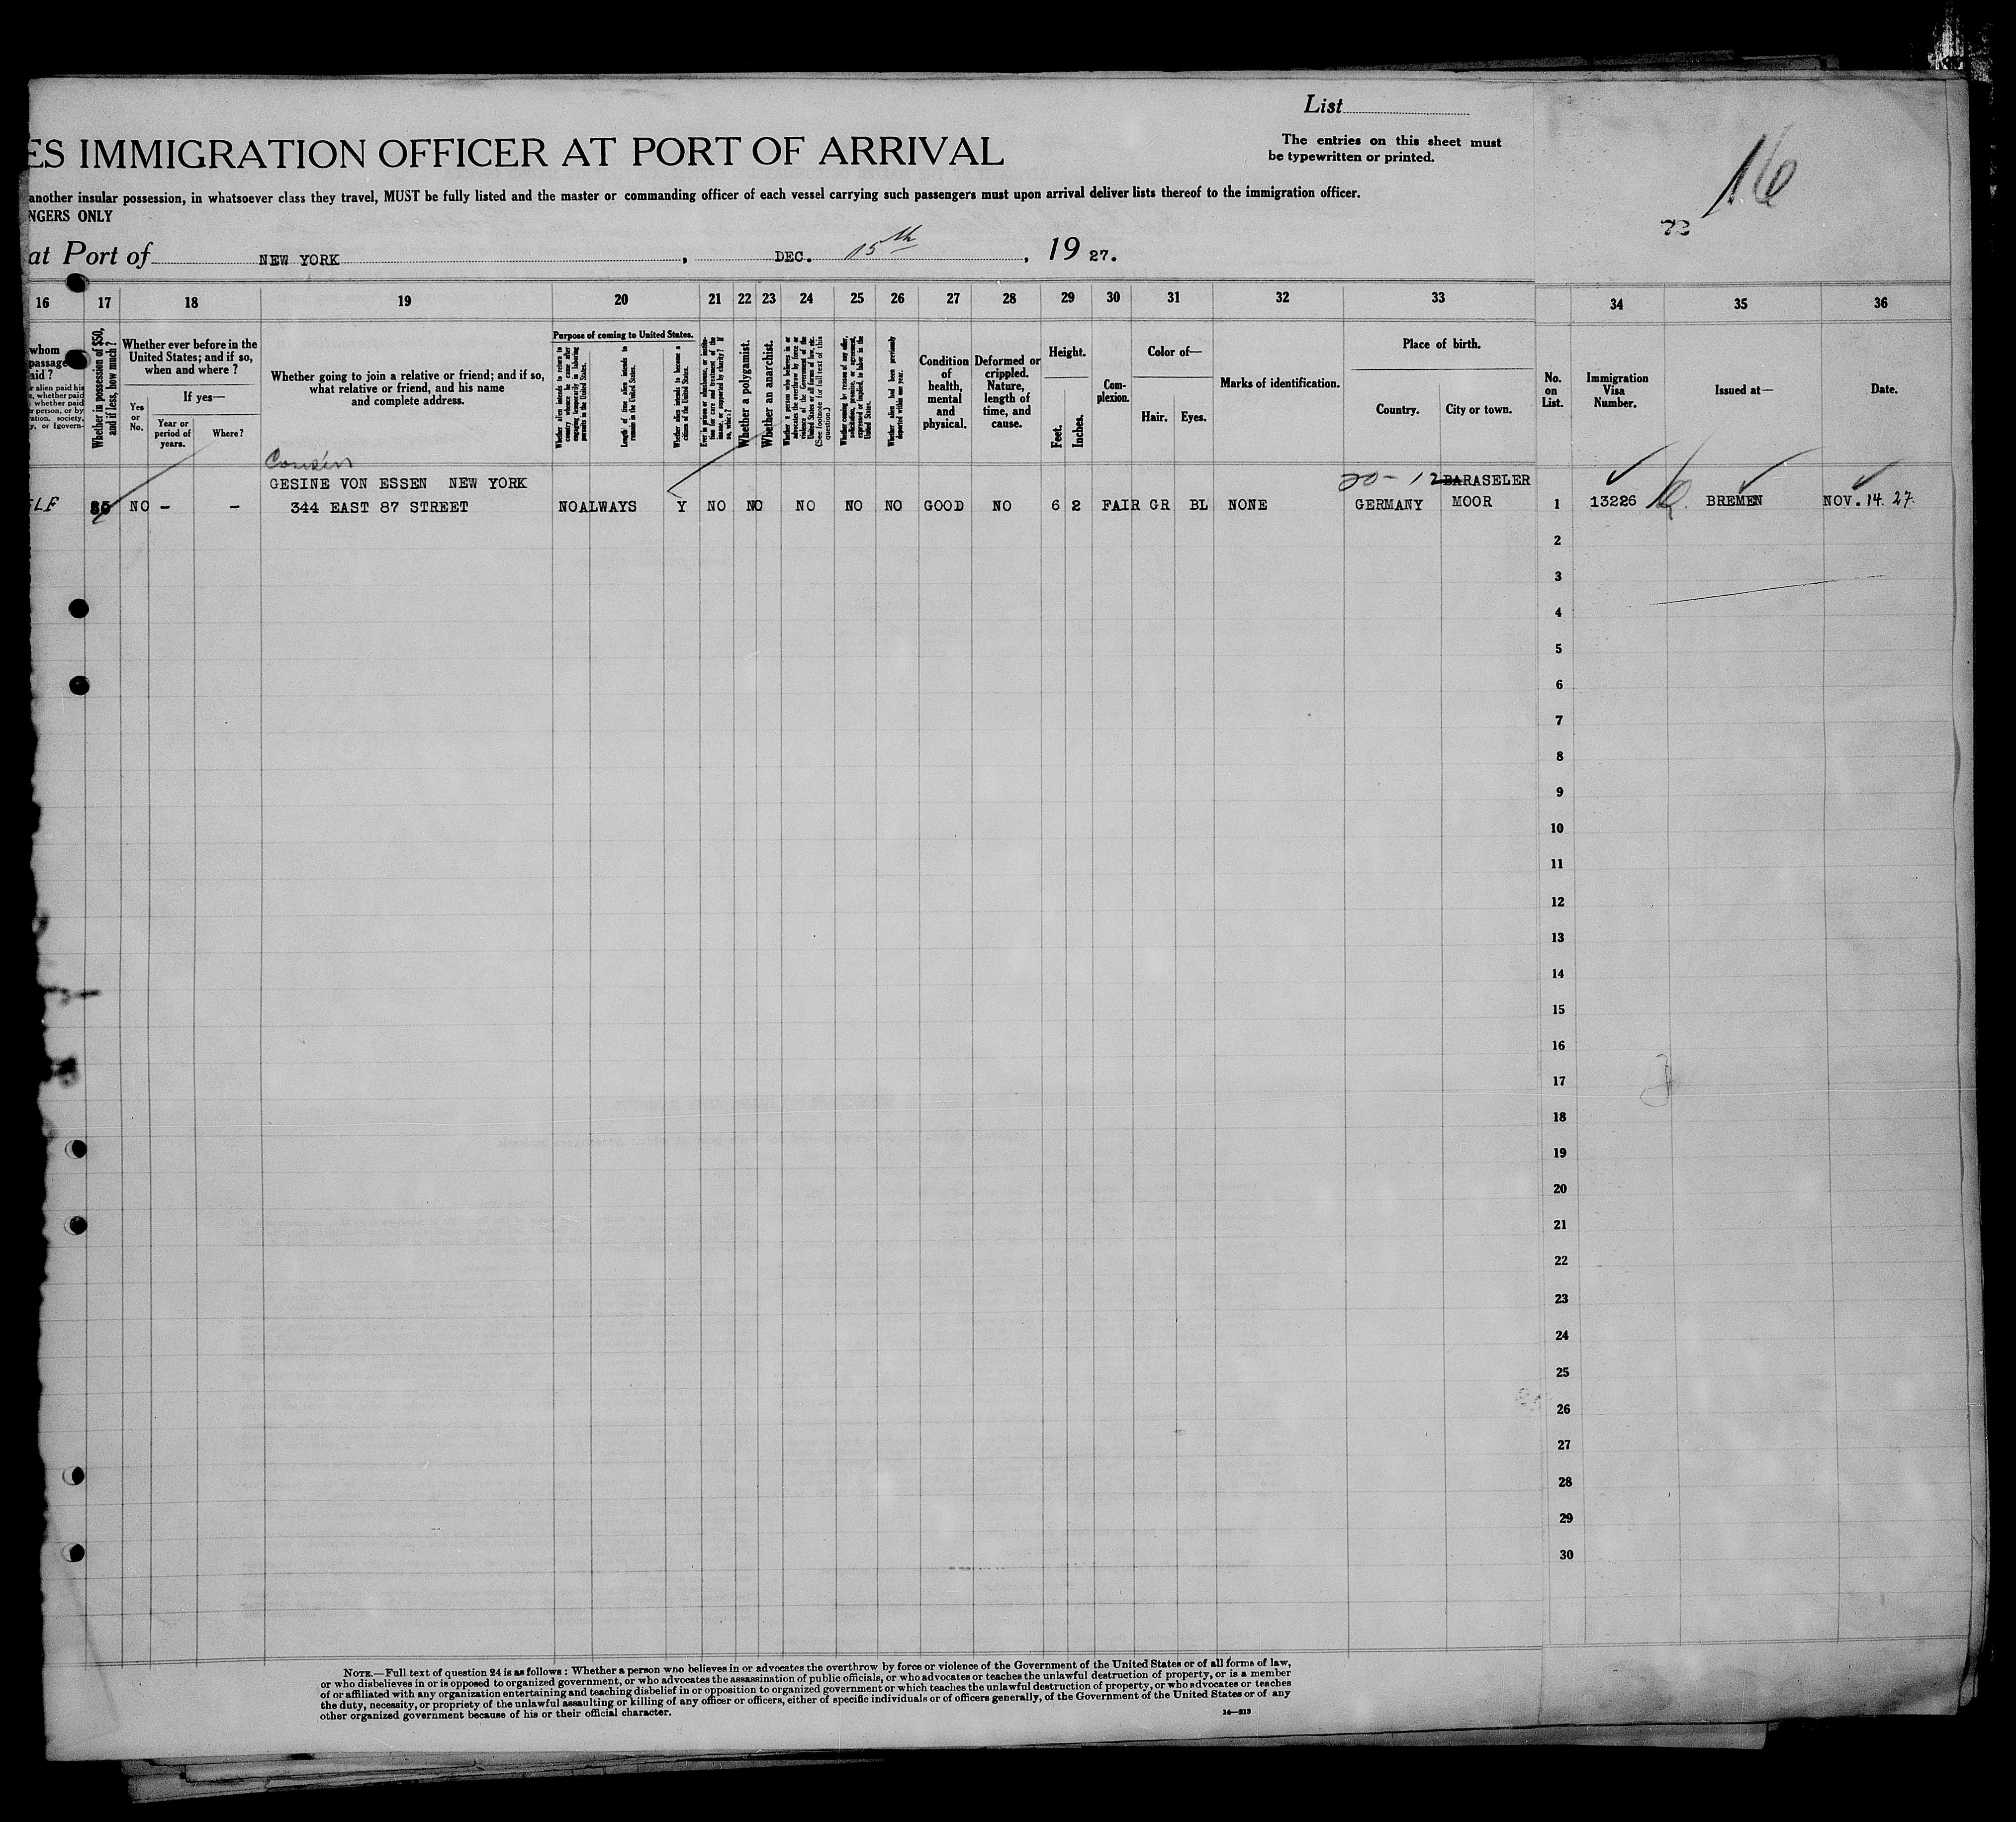 List
ES IMMIGRATION OFFICER AT PORT OF ARRIVAL
The entries on this sheet must
be typewritten or printed.
16
another insular possession, in whatsoever class they travel, MUST be fully listed and the master or commanding officer of each vessel carrying such passengers must upon arrival deliver lists thereof to the immigration officer.
NGERS ONLY
at Port of NEW YORK, DEC. 15th, 19 27.
16 17 18 19 20 21 22 23 24 25 26 27 28 29 30 31 32 33 34 35 36
whom
passage
aid ?
r alien paid his
e, whether paid
whether paid
r person, or by
ration, society,
y, or govern-
Whether in possession of $50,
and if less, how much?
Whether ever before in the
United States; and if so,
when and where ?
Yes
or
No.
If yes—
Year or
period of
years.
Where?
Whether going to join a relative or friend; and if so,
what relative or friend, and his name
and complete address.
Purpose of coming to United States.
Whether alien intends to return to
country whence he came after
engaging temporarily in laboring
pursuits in the United States.
Length of time alien intends to
remain in the United States.
Whether alien intends to become a
citizen of the United States.
Ever in prison or almshouse, or institu-
tion for care and treatment of the
insane, or supported by charity? If
so, which?
Whether a polygamist.
Whether an anarchist.
Whether a person who believes in or
advocates the overthrow by force or
violence of the Government of the
United States or all forms of law, etc.
(See footnote for full text of this
question.)
Whether coming by reason of any offer,
solicitation, promise, or agreement,
expressed or implied, to labor in the
United States.
Whether alien had been previously
deported within one year.
Condition
of
health,
mental
and
physical.
Deformed or
crippled.
Nature,
length of
time, and
cause.
Height.
Feet.
Inches.
Com-
plexion.
Color of—
Hair. Eyes.
Marks of identification.
Place of birth.
Country. City or town.
No.
on
List.
Immigration
Visa
Number.
Issued at—
Date.
Cousin
GESINE VON ESSEN NEW YORK BARASELER
LF NO - - 344 EAST 87 STREET NO ALWAYS Y NO NO NO NO NO GOOD NO 6 2 FAIR GR BL NONE GERMANY MOOR 1 13226 BREMEN NOV. 14. 27.
2
3
4
5
6
7
8
9
10
11
12
13
14
15
16
17
18
19
20
21
22
23
24
25
26
27
28
29
30
NOTE.—Full text of question 24 is as follows : Whether a person who believes in or advocates the overthrow by force or violence of the Government of the United States or of all forms of law,
or who disbelieves in or is opposed to organized government, or who advocates the assassination of public officials, or who advocates or teaches the unlawful destruction of property, or is a member
of or affiliated with any organization entertaining and teaching disbelief in or opposition to organized government or which teaches the unlawful destruction of property, or who advocates or teaches
the duty, necessity, or propriety of the unlawful assaulting or killing of any officer or officers, either of specific individuals or of officers generally, of the Government of the United States or of any
other organized government because of his or their official character.
14—213